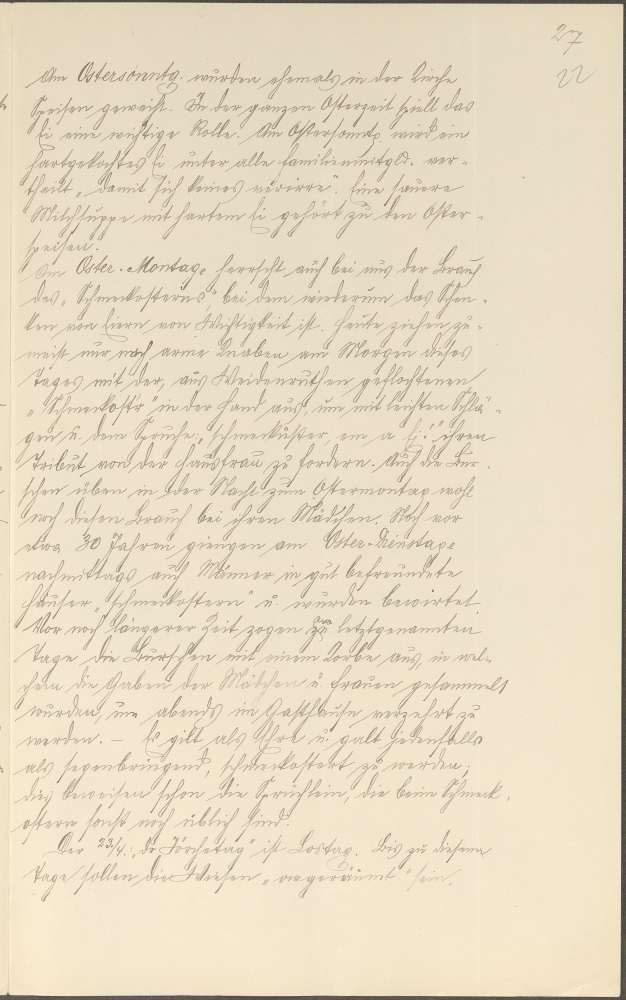 27
22
Am Ostersonntg. wurden ehemals in der Kirche
Speisen geweiht. In der ganzen Osterzeit spielt das
Ei eine wichtige Rolle. Am Ostersonntg. wird ein
hartgekochtes Ei unter alle Familienmitgld. ver-
theilt „damit sich keines verirre“. Eine sauere
Milchsuppe mit hartem Ei gehört zu den Oster-
speisen.
Am Oster-Montage herrscht auch bei uns der Brauch
des „Schmeckosterns“, bei dem wiederum das Schen-
ken von Eiern von Wichtigkeit ist. Heute ziehen zu-
meist nur noch arme Knaben am Morgen dieses
Tages mit der, aus Weidenruthen geflochtenen
„Schmeckostr“ in der Hand aus, um mit leichten Schlä-
gen u. dem Spruche: „schmeckuster, em a Ei!“ ihren
Tribut von der Hausfrau zu fordern. Auch die Bur-
schen üben in der Nacht zum Ostermontag wohl
noch diesen Brauch bei ihren Mädchen. Noch vor
etwa 30 Jahren giengen am Oster-Dienstage
nachmittags auch Männer in gut befreundete
Häuser „schmeckostern“ u. wurden bewirtet.
Vor noch längerer Zeit zogen am letztgenannten
Tage die Burschen mit einem Korbe aus, in wel-
chem die Gaben der Mädchen u. Frauen gesammelt
wurden, um abends im Gasthause verzehrt zu
werden. – Es gilt als Ehre u. galt jedenfalls
als segenbringend, schmeckostert zu werden;
dies beweisen schon die Sprüchlein, die beim Schmeck-
ostern sonst noch üblich sind.
Der 23/4.: „Dr Jörchetag“ ist Lostag. Bis zu diesem
Tage sollen die Wiesen „ogeräumt“ sein.